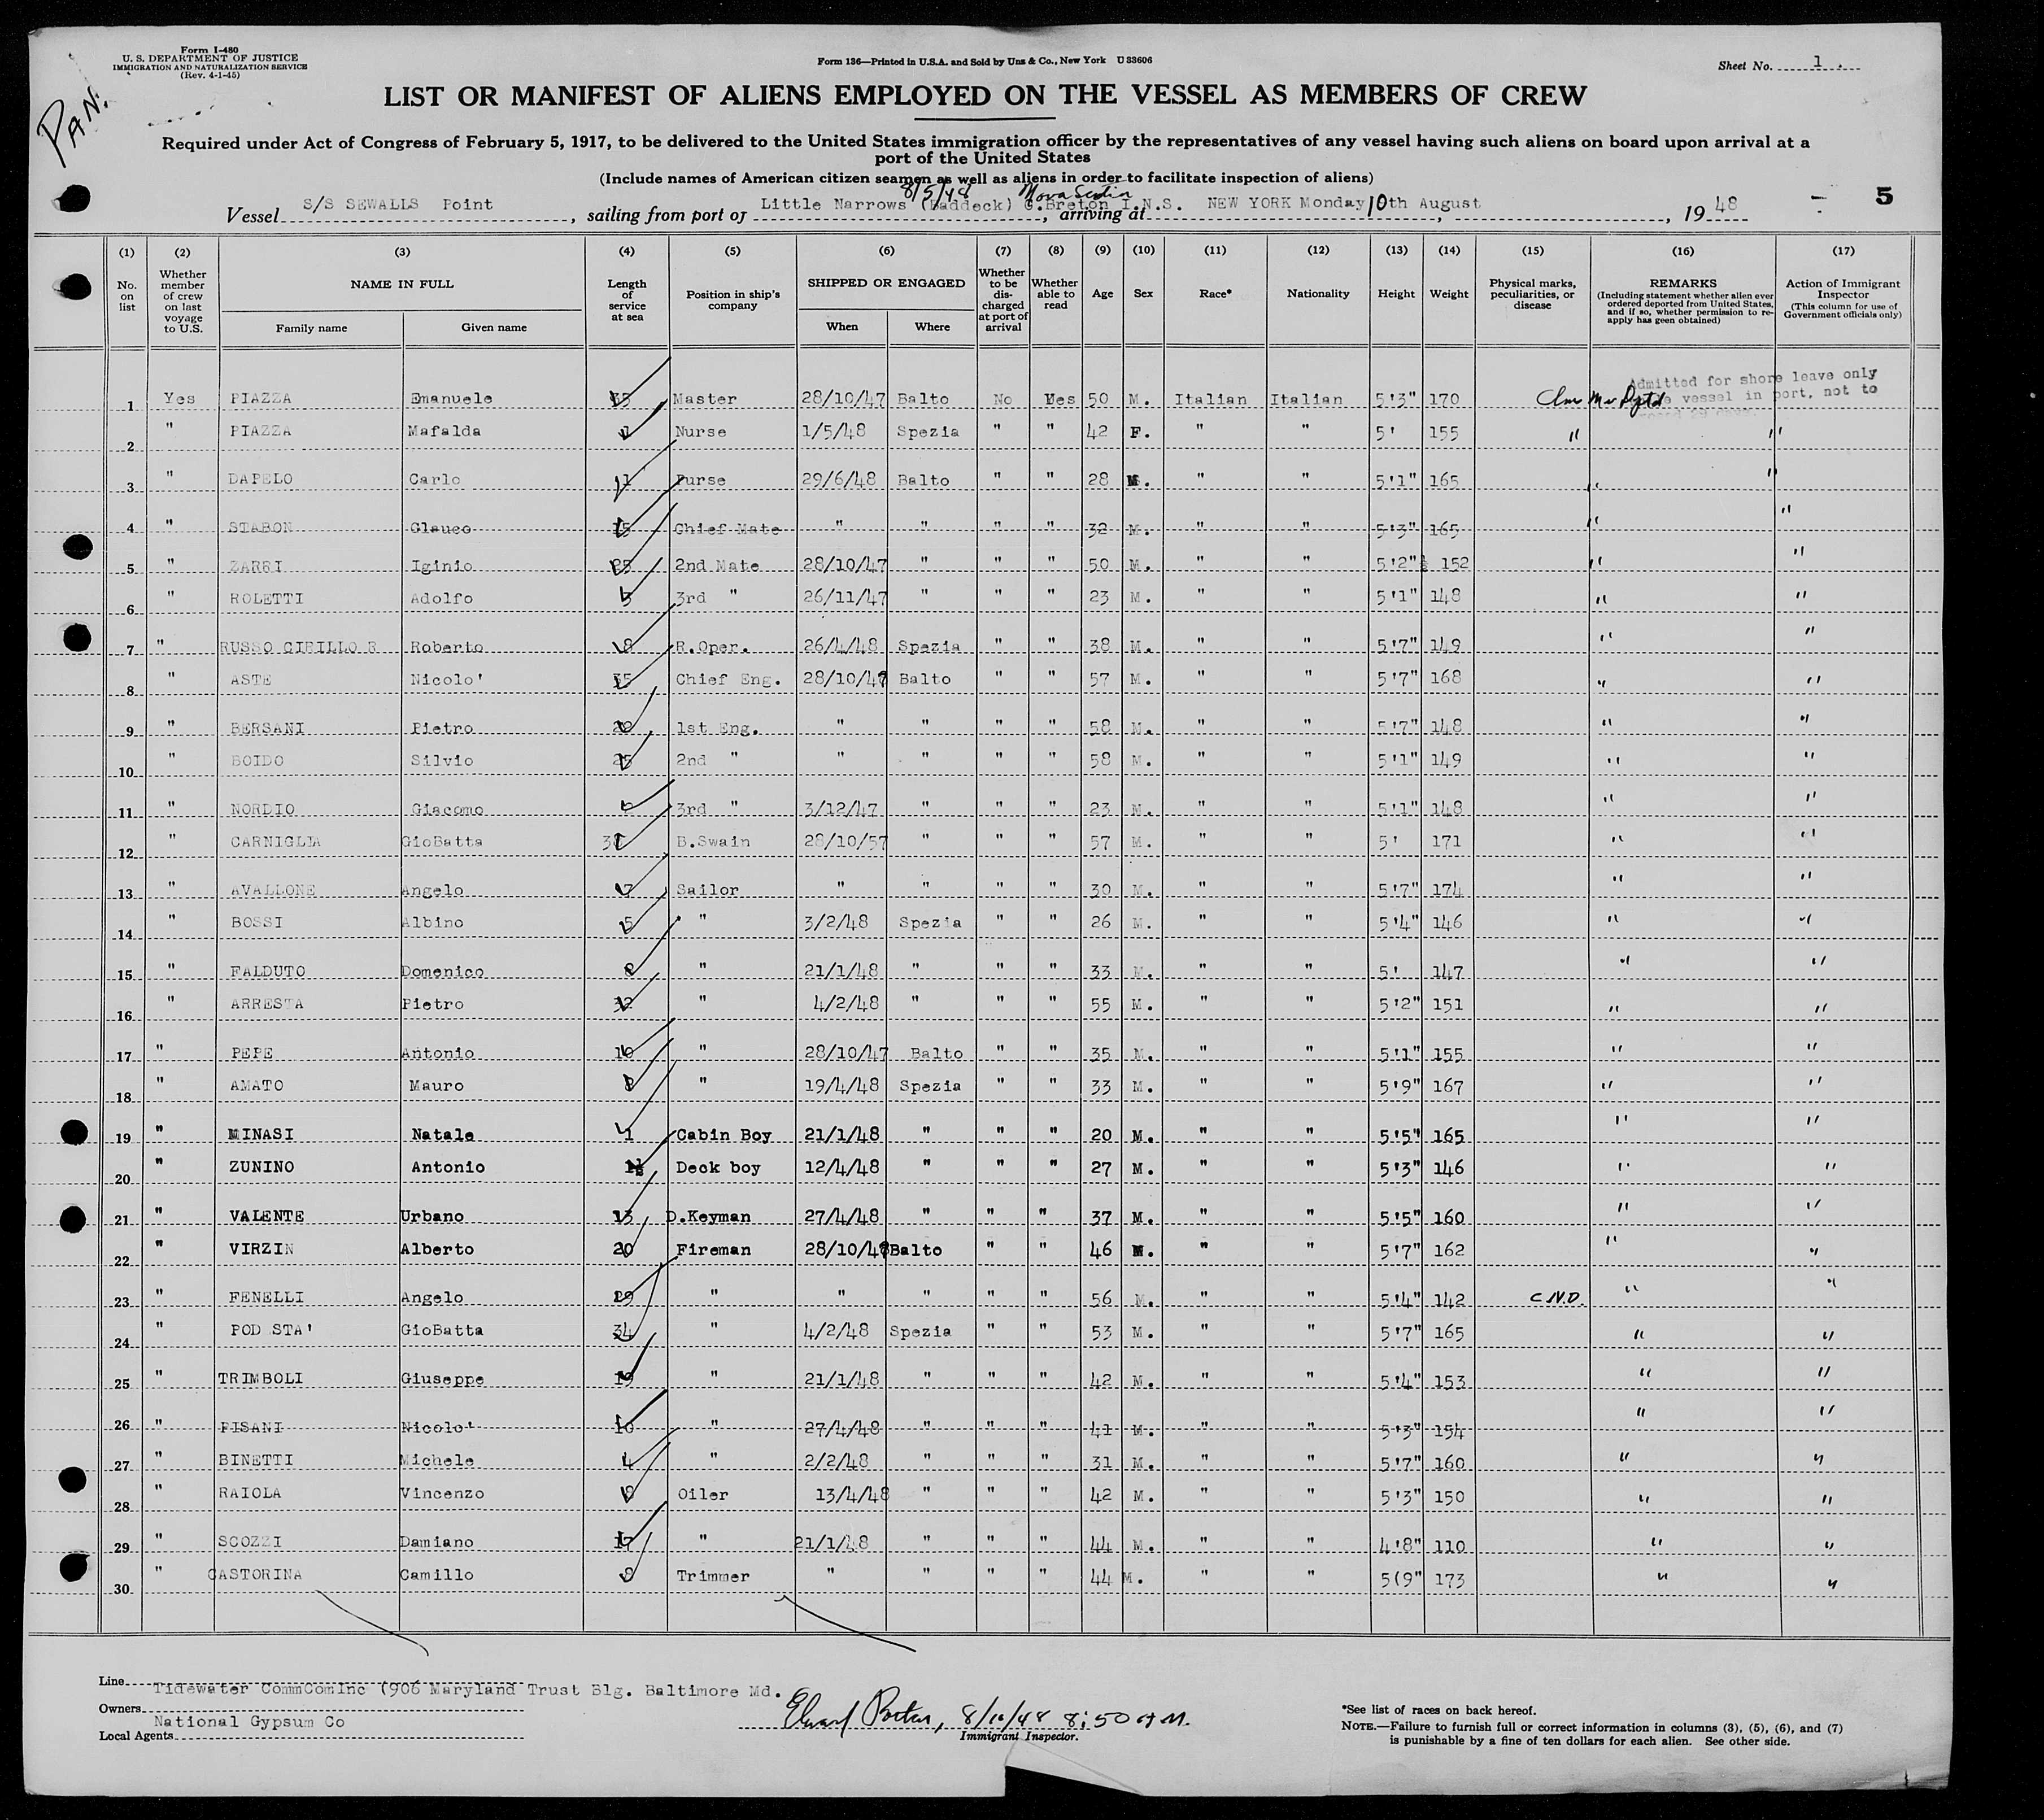 Form I-480
U. S. DEPARTMENT OF JUSTICE
IMMIGRATION AND NATURALIZATION SERVICE
(Rev. 4-1-45)
Form 136—Printed in U.S.A. and Sold by Unz & Co., New York U 33606
Sheet No. 1.
PAN.
LIST OR MANIFEST OF ALIENS EMPLOYED ON THE VESSEL AS MEMBERS OF CREW
Required under Act of Congress of February 5, 1917, to be delivered to the United States immigration officer by the representatives of any vessel having such aliens on board upon arrival at a
port of the United States
(Include names of American citizen seamen as well as aliens in order to facilitate inspection of aliens)
8/5/48 Nova Scotia
Vessel S/S SEWALLS Point, sailing from port of Little Narrows (Baddeck) C.Breton I.N.S., arriving at NEW YORK Monday 10th August, 19 48 5
(1) (2) (3) (4) (5) (6) (7) (8) (9) (10) (11) (12) (13) (14) (15) (16) (17)
No. on list
Whether member of crew on last voyage to U.S.
NAME IN FULL
Family name
Given name
Length of service at sea
Position in ship's company
SHIPPED OR ENGAGED
When
Where
Whether to be discharged at port of arrival
Whether able to read
Age
Sex
Race*
Nationality
Height
Weight
Physical marks, peculiarities, or disease
REMARKS
(Including statement whether alien ever ordered deported from United States, and if so, whether permission to reapply has geen obtained)
Action of Immigrant Inspector
(This column for use of Government officials only)
Admitted for shore leave only
vessel in port, not to
1 Yes PIAZZA Emanuele Master 28/10/47 Balto No Yes 50 M. Italian Italian 5'3" 170
2 " PIAZZA Mafalda 1 Nurse 1/5/48 Spezia " " 42 F. " " 5' 155 " "
3 " DAPELO Carlo 1 Purse 29/6/48 Balto " " 28 M. " " 5'1" 165 " "
4 " STABON Glauco 15 Chief Mate " " " " 32 M. " " 5'3" 165 " "
5 " ZARRI Iginio 25 2nd Mate 28/10/47 " " " 50 M. " " 5'2"½ 152 " "
6 " ROLETTI Adolfo 3 3rd " 26/11/47 " " " 23 M. " " 5'1" 148 " "
7 " RUSSO CIRILLO R Roberto 8 R.Oper. 26/4/48 Spezia " " 38 M. " " 5'7" 149 " "
8 " ASTE Nicolo' 35 Chief Eng. 28/10/47 Balto " " 57 M. " " 5'7" 168 " "
9 " BERSANI Pietro 20 1st Eng. " " " " 58 M. " " 5'7" 148 " "
10 " BOIDO Silvio 25 2nd " " " " " 58 M. " " 5'1" 149 " "
11 " NORDIO Giacomo 3rd " 3/12/47 " " " 23 M. " " 5'1" 148 " "
12 " CARNIGLIA GioBatta B.Swain 28/10/57 " " " 57 M. " " 5' 171 " "
13 " AVALLONE Angelo 7 Sailor " " " " 30 M. " " 5'7" 174 " "
14 " BOSSI Albino 5 " 3/2/48 Spezia " " 26 M. " " 5'4" 146 " "
15 " FALDUTO Domenico 8 " 21/1/48 " " " 33 M. " " 5' 147 " "
16 " ARRESTA Pietro 32 " 4/2/48 " " " 55 M. " " 5'2" 151 " "
17 " PEPE Antonio 10 " 28/10/47 Balto " " 35 M. " " 5'1" 155 " "
18 " AMATO Mauro 8 " 19/4/48 Spezia " " 33 M. " " 5'9" 167 " "
19 " MINASI Natale 1 Cabin Boy 21/1/48 " " " 20 M. " " 5'5" 165 " "
20 " ZUNINO Antonio 1½ Deck boy 12/4/48 " " " 27 M. " " 5'3" 146 " "
21 " VALENTE Urbano 13 D.Keyman 27/4/48 " " " 37 M. " " 5'5" 160 " "
22 " VIRZIN Alberto 20 Fireman 28/10/48 Balto " " 46 M. " " 5'7" 162 " "
23 " FENELLI Angelo 29 " " " " " 56 M. " " 5'4" 142 C.N.D. " "
24 " POD STA' GioBatta 34 " 4/2/48 Spezia " " 53 M. " " 5'7" 165 " "
25 " TRIMBOLI Giuseppe 19 " 21/1/48 " " " 42 M. " " 5'4" 153 " "
26 " PISANI Nicolo' 10 " 27/4/48 " " " 41 M. " " 5'3" 154 " "
27 " BINETTI Michele 4 " 2/2/48 " " " 31 M. " " 5'7" 160 " "
28 " RAIOLA Vincenzo 8 Oiler 13/4/48 " " " 42 M. " " 5'3" 150 " "
29 " SCOZZI Damiano 17 " 21/1/48 " " " 44 M. " " 4'8" 110 " "
30 " CASTORINA Camillo 8 Trimmer " " " " 44 M. " " 5(9" 173 " "
Line Tidewater CommComInc (906 Maryland Trust Blg. Baltimore Md.
Owners National Gypsum Co
Local Agents
Edward Porter, 8/10/48 8:50 AM.
Immigrant Inspector.
*See list of races on back hereof.
NOTE.—Failure to furnish full or correct information in columns (3), (5), (6), and (7)
is punishable by a fine of ten dollars for each alien. See other side.